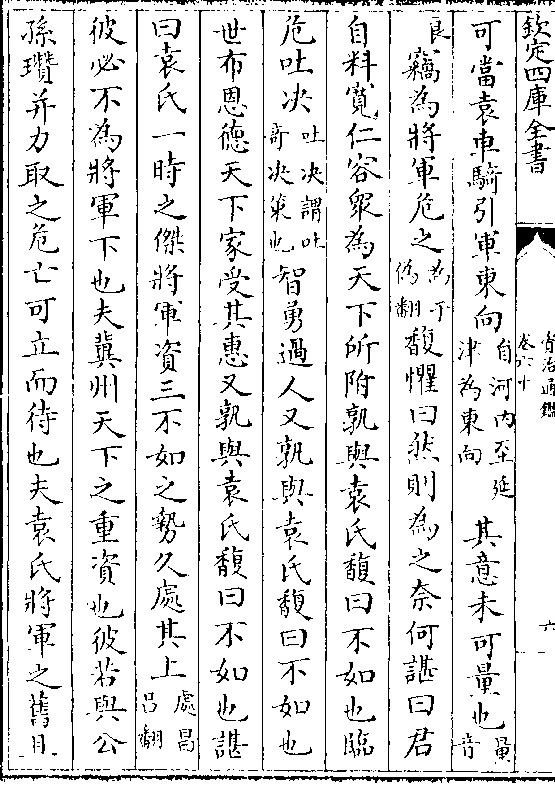 欽定四庫全書
資治通鑑
卷六十
六
可當袁車騎引軍東向自河内至延津為東向其意未可量也量音
良竊為將軍危之為于偽翻馥懼曰然則為之奈何諶曰君
自料寛仁容衆為天下所附孰與袁氏馥曰不如也臨
危吐決吐決謂吐奇決策也智勇過人又孰與袁氏馥曰不如也
世布恩德天下家受其惠又孰與袁氏馥曰不如也諶
曰袁氏一時之傑將軍資三不如之勢久處其上處昌吕翻
彼必不為將軍下也夫冀州天下之重資也彼若與公
孫瓚并力取之危亡可立而待也夫袁氏將軍之舊且